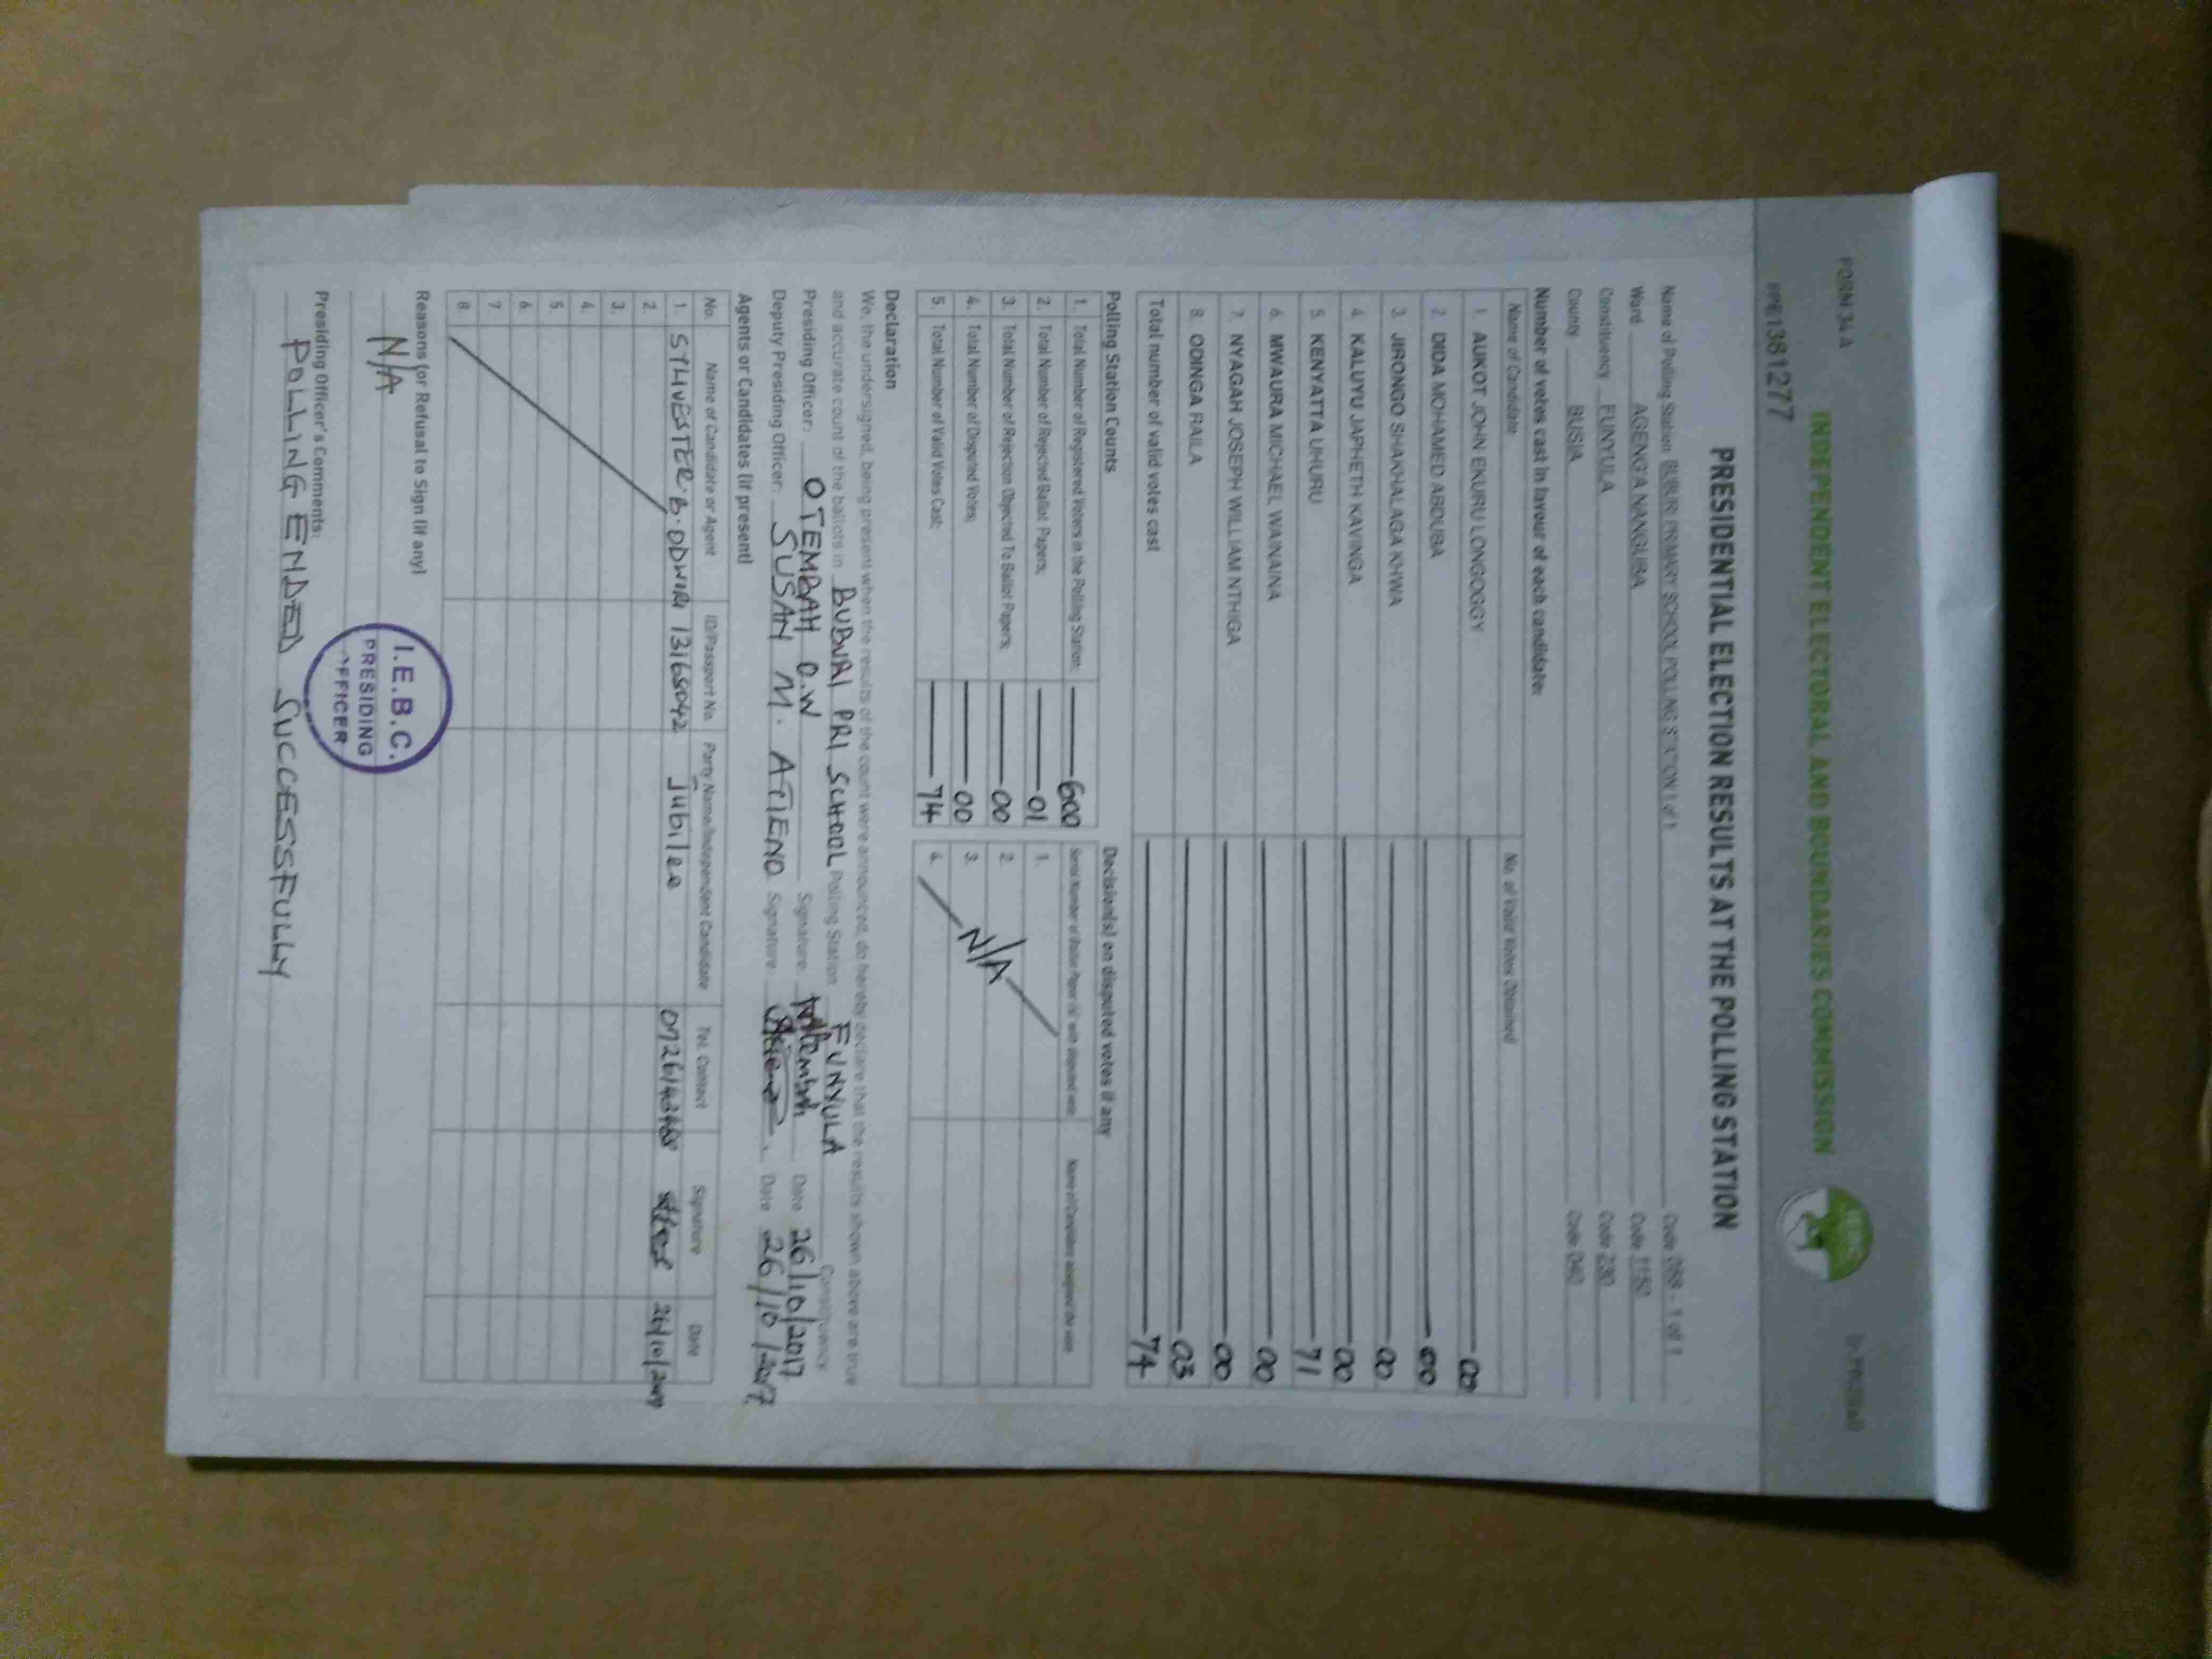 FORM 34A
INDEPENDENT ELECTORAL AND BOUNDARIES COMMISSION
PRE1381277
PRESIDENTIAL ELECTION RESULTS AT THE POLLING STATION
Name of Polling Station BUBURI PRIMARY SCHOOL POLLING STATION 1 of 1 Code 058 - 1 of 1
Ward AGENG'A NANGUBA Code 1150
Constituency FUNYULA Code 230
County BUSIA Code 040
Number of votes cast in favour of each candidate:
Name of Candidate No. of Valid Votes Obtained
1. AUKOT JOHN EKURU LONGOGGY 00
2. DIDA MOHAMED ABDUBA 00
3. JIRONGO SHAKHALAGA KHWA 00
4. KALUYU JAPHETH KAVINGA 00
5. KENYATTA UHURU 71
6. MWAURA MICHAEL WAINAINA 00
7. NYAGAH JOSEPH WILLIAM NTHIGA 00
8. ODINGA RAILA 03
Total number of valid votes cast 74
Polling Station Counts
1. Total Number of Registered Voters in the Polling Station: 600
2. Total Number of Rejected Ballot Papers: 01
3. Total Number of Rejection Objected To Ballot Papers: 00
4. Total Number of Disputed Votes: 00
5. Total Number of Valid Votes Cast: 74
Decision(s) on disputed votes if any
Serial Number of Ballot Paper (s) with disputed vote Name of Candidate assigned the vote
1.
2.
3.
4.
N/A
Declaration
We, the undersigned, being present when the results of the count were announced, do hereby declare that the results shown above are true
and accurate count of the ballots in BUBURI PRI SCHOOL Polling Station FUNYULA Constituency
Presiding Officer: OTEMBAH O.W Signature Date 26/10/2017
Deputy Presiding Officer: SUSAN M. ATIENO Signature Date 26/10/2017
Agents or Candidates (if present)
No. Name of Candidate or Agent ID/Passport No. Party Name/Independent Candidate Tel. Contact Signature Date
1. SYLIVESTER B. ODWORI 13165042 Jubilee 26/10/2017
2.
3.
4.
5.
6.
7.
8.
Reasons for Refusal to Sign (if any)
N/A
I.E.B.C.
PRESIDING
OFFICER
Presiding Officer's Comments:
POLLING ENDED SUCCESSFULLY